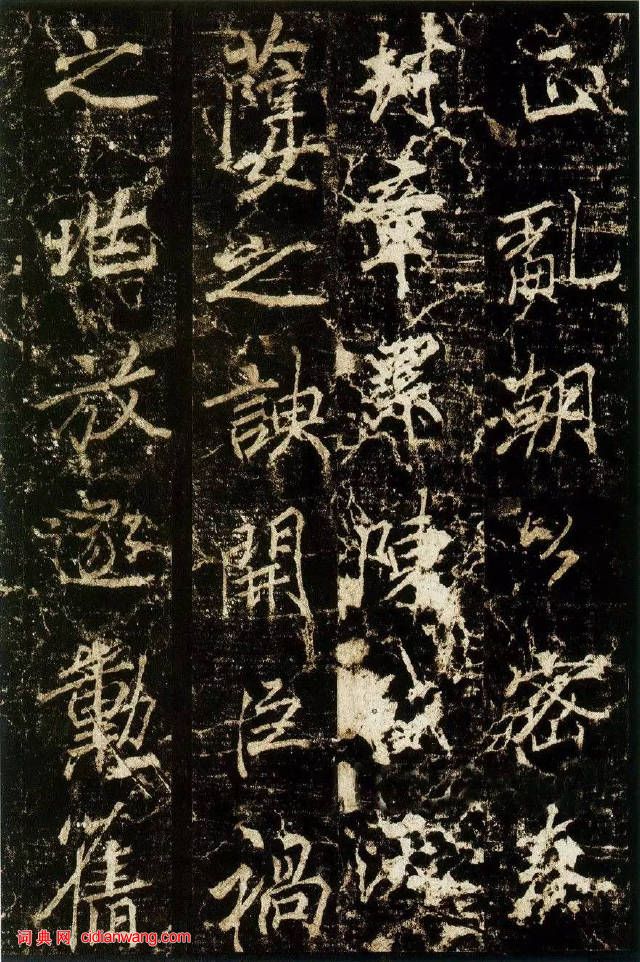 正亂朝以密奏
封章累陳
之諛開臣禍
之階放逐勳舊
词典网 cidianwang.com